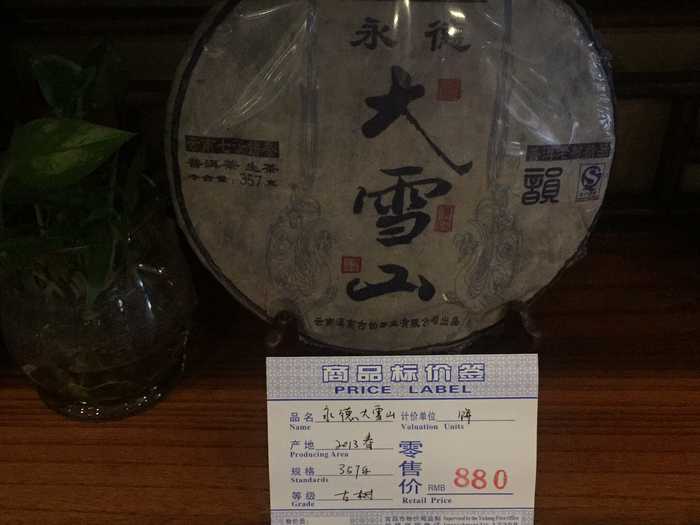 永德
大
雪
山
普洱茶 生茶
净含量:357克
韻
商品标价签
PRICE LABEL
品名 永德大雪山 计价单位 饼
Name Valuation Units
产地 2013春
Producing Area
规格 357克
Standards
等级 古树
Grade
零售价 RMB 880
Retail Price